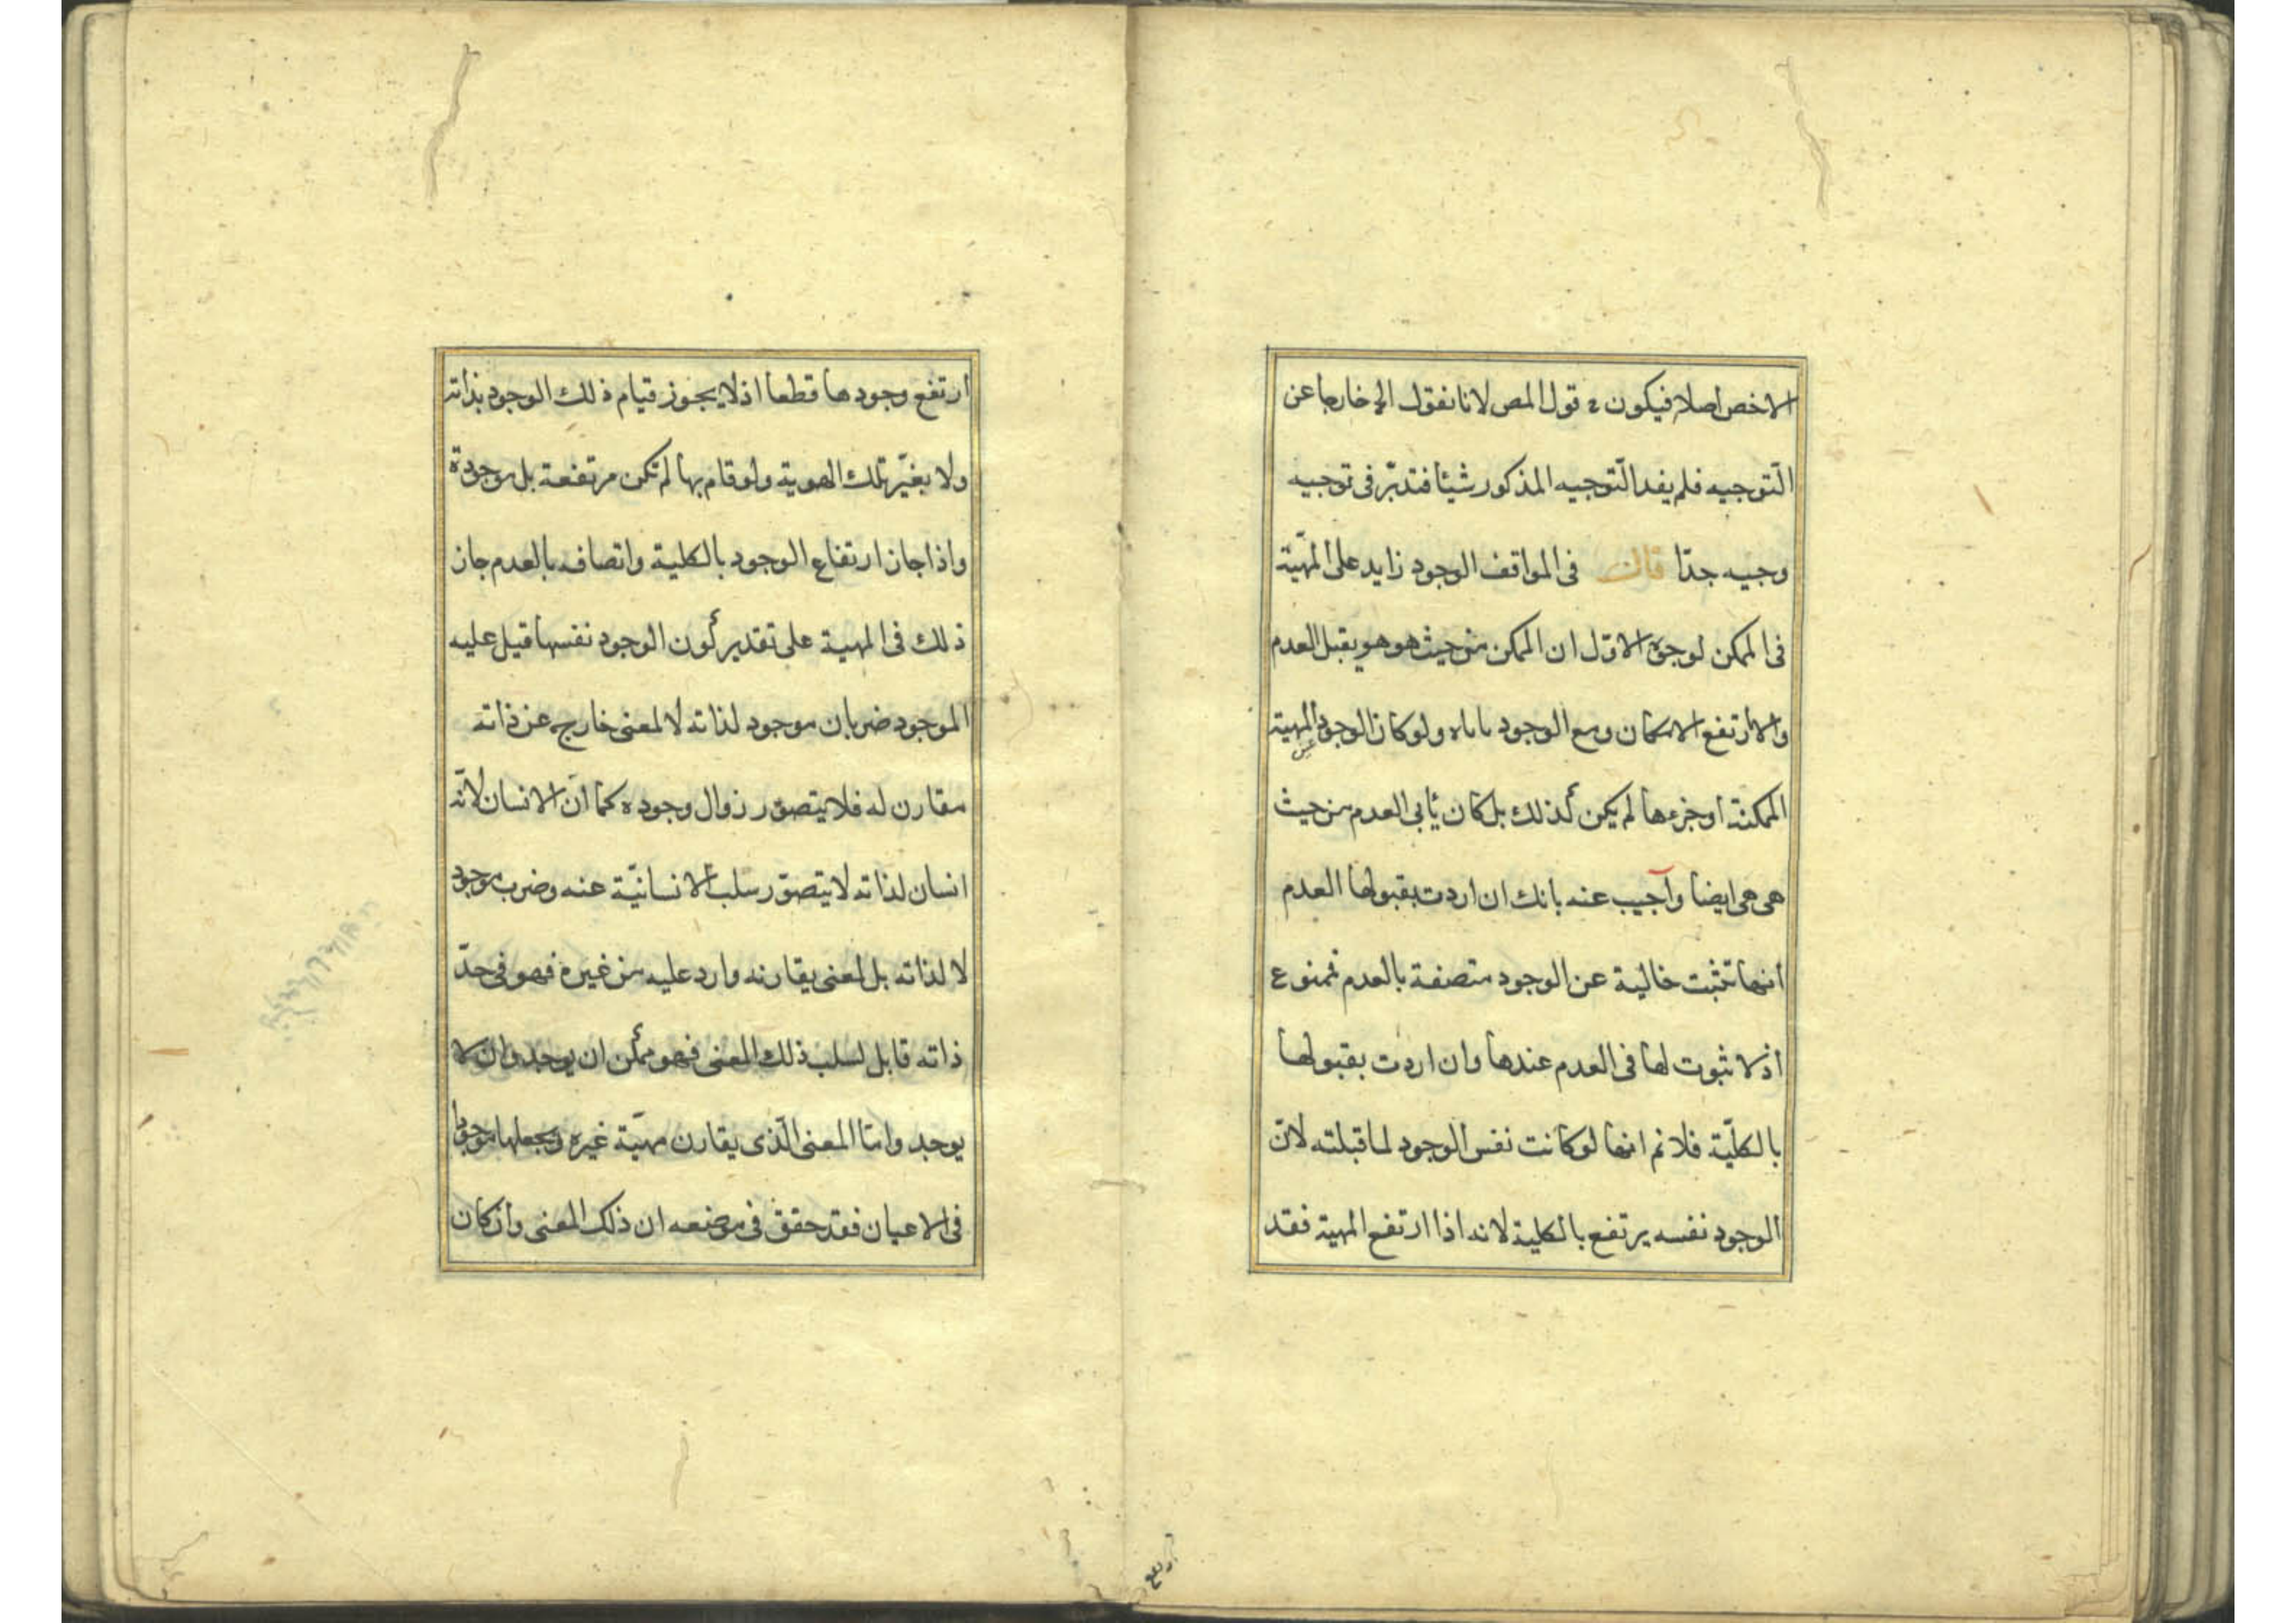 الاخص اصلا فيكون ح قول المص لانا نقول الخ خارجا عن
التّوجيه فلم يفد التّوجيه المذكور شيئا فتدبّر فى توجيه
وجيه جدّا قال فى المواقف الوجود زايد على المهيّة
فى الممكن لوجوه الاوّل ان الممكن من حيث هو هو يقبل العدم
والا ارتفع الامكان ومع الوجود ياباه ولو كان الوجود المهية
عين
الممكنة او جزءها لم يكن كذلك بل كان يأبى العدم من حيث
هى هى ايضا وآجيب عنه بانك ان اردت بقبولها العدم
انها تثبت خالية عن الوجود متصفة بالعدم فممنوع
اذ لا ثبوت لها فى العدم عندها وان اردت بقبولها
بالكليّة فلا نم انها لو كانت نفس الوجود لما قبلته لانّ
الوجود نفسه يرتفع بالكلية لانه اذا ارتفع المهية فقد
ارتفع
ارتفع وجودها قطعا اذ لا يجوز قيام ذلك الوجود بذاته
ولا بغيّر تلك الهوية ولو قام بها لم تكن مرتفعة بل موجودة
واذا جاز ارتفاع الوجود بالكلية واتصافه بالعدم جاز
ذلك فى المهية على تقدير كون الوجود نفسها قيل عليه
الموجود ضربان موجود لذاته لا لمعنى خارج عن ذاته
مقارن له فلا يتصوّر زوال وجوده كما انّ الانسان لانّه
انسان لذاته لا يتصوّر سلب الانسانيّة عنه وضرب موجود
لا لذاته بل لمعنى يقارنه وارد عليه من غيره فهو فى حدّ
ذاته قابل لسلب ذلك المعنى فهو ممكن ان يوجد وان لا
يوجد وامّا المعنى الّذى يقارن مهيّة غيره ويجعلها موجودا
فى الاعيان فقد حقق فى موضعه ان ذلك المعنى وان كان